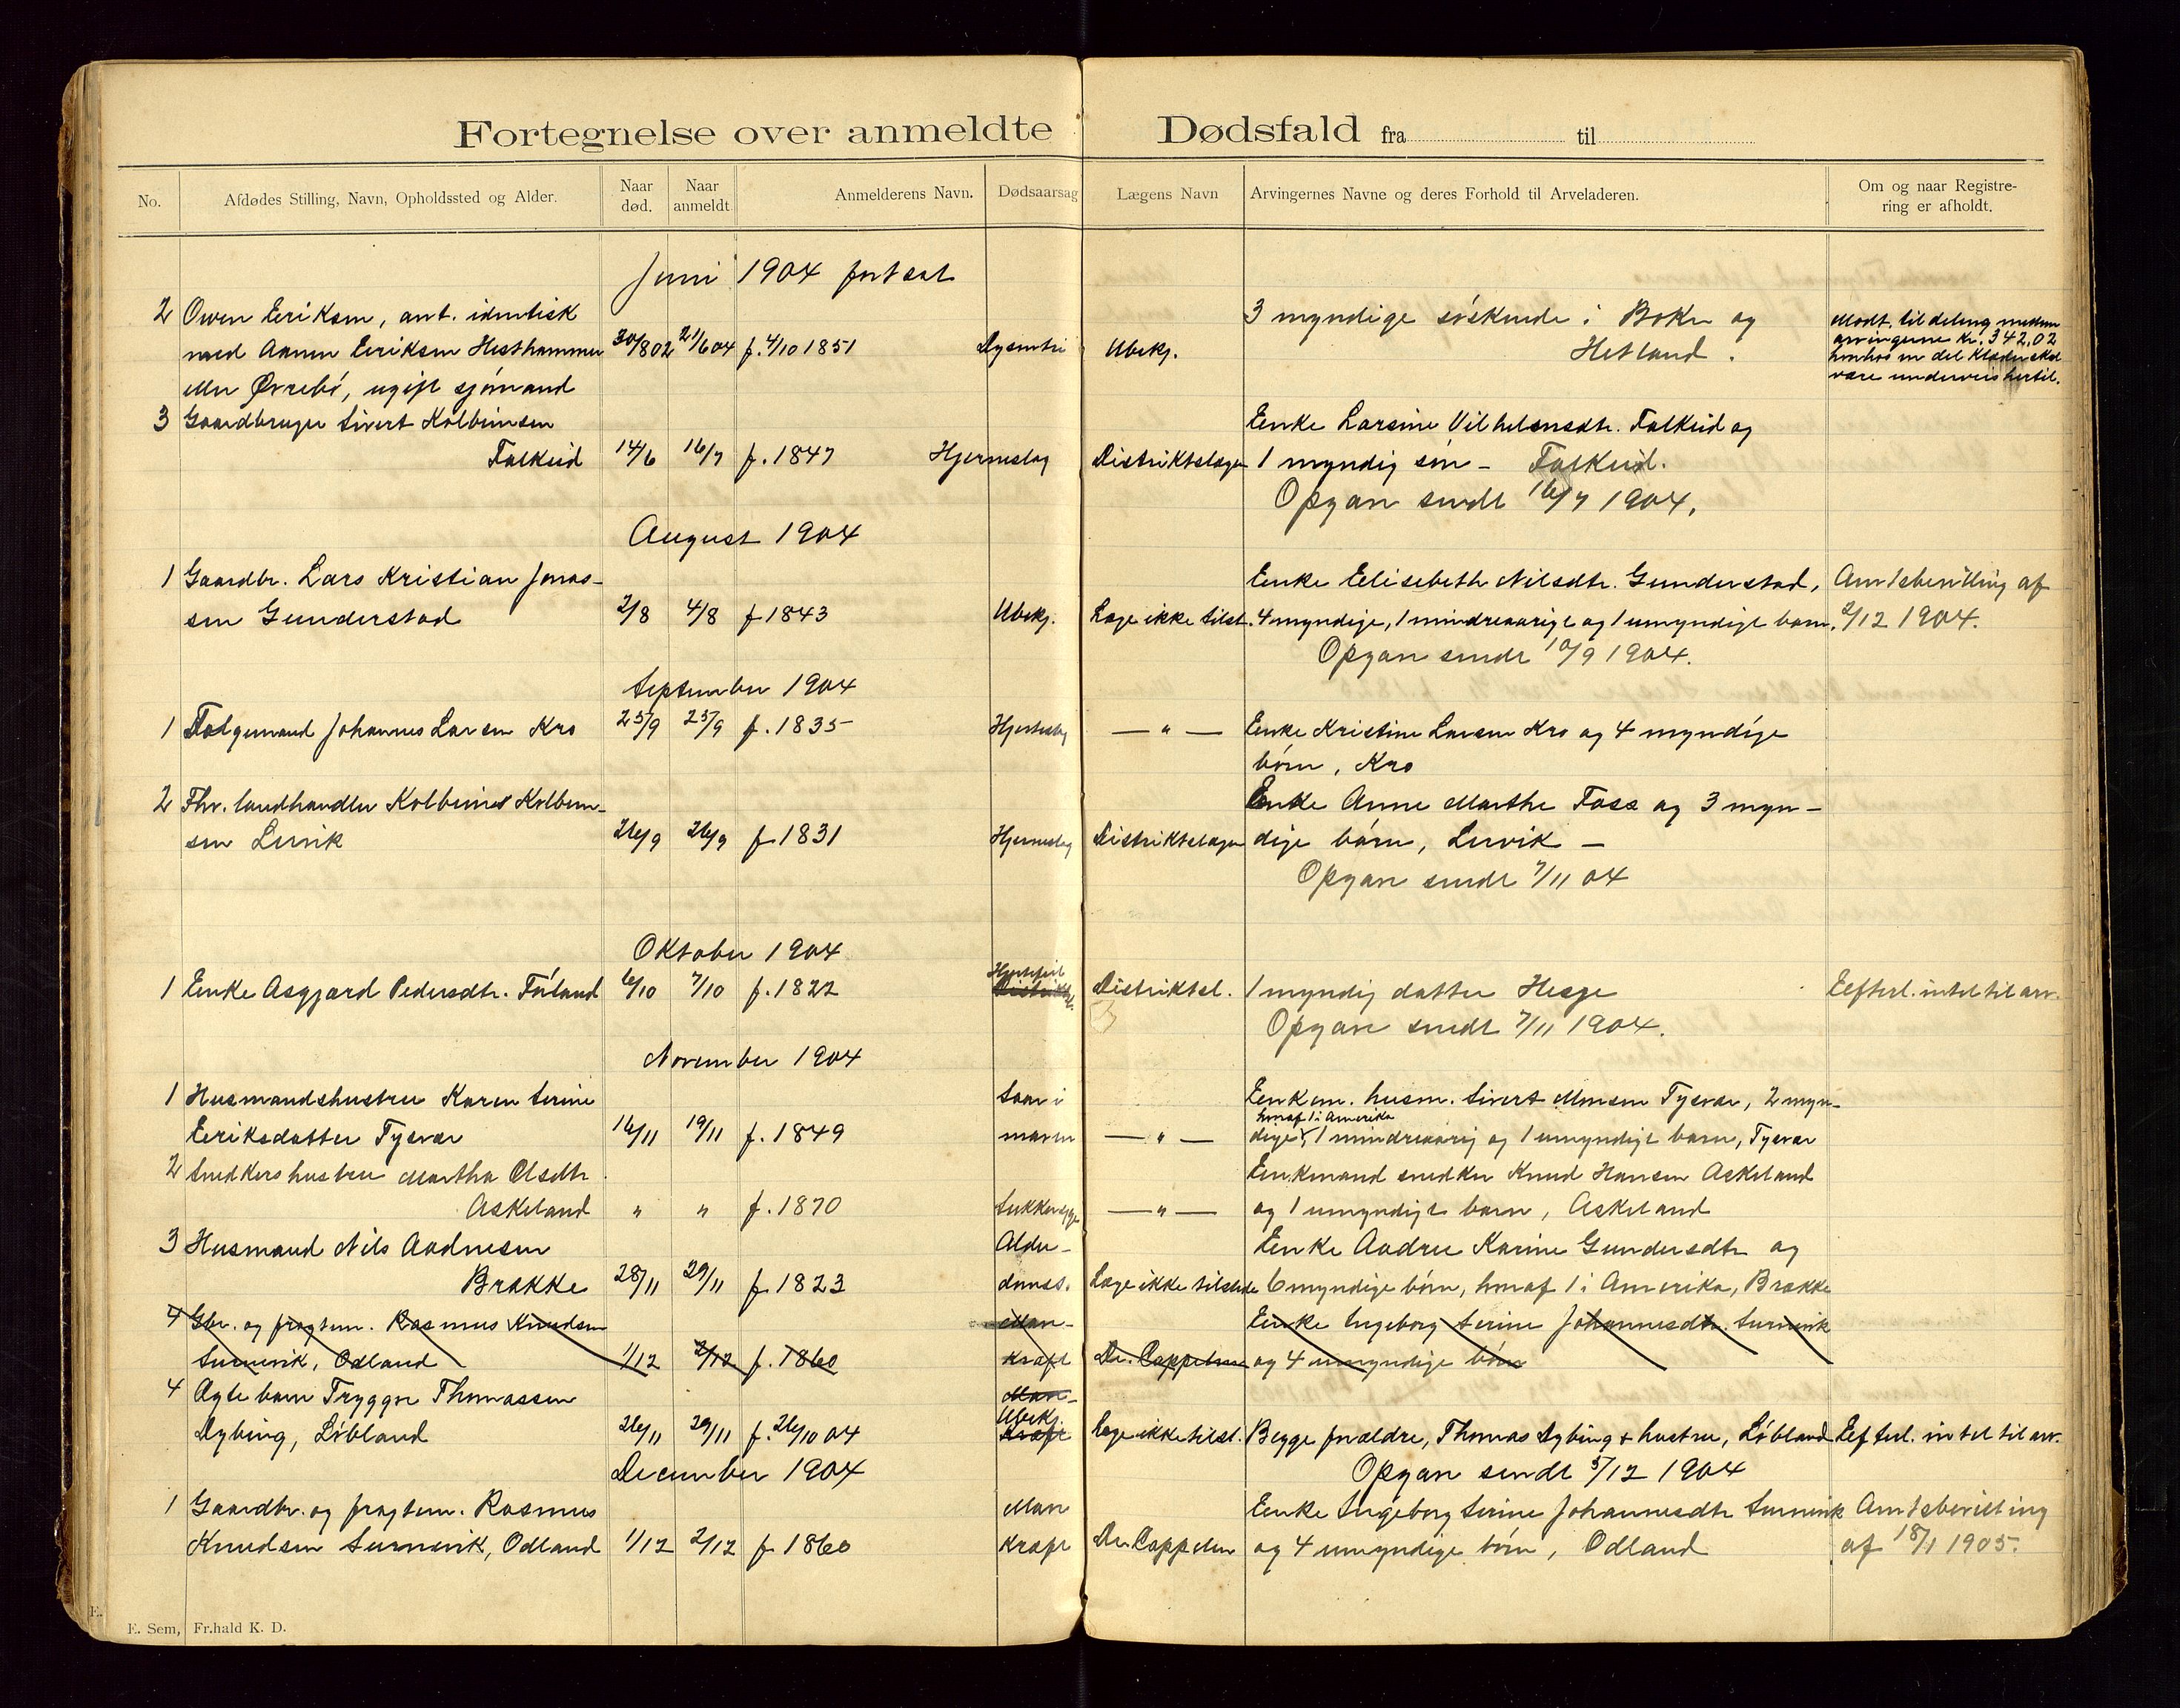 Fortegnelse over anmeldte Dødsfald fra til
No. Afdødes Stilling, Navn, Opholdssted og Alder. Naar død. Naar anmeldt Anmelderens Navn. Dødsaarsag Lægens Navn Arvingernes Navne og deres Forhold til Arveladeren. Om og naar Registrering er afholdt.
Juni 1904 fortsat
2 Owen Eeriksen, ant. identisk 3 myndige søskende i Bokn og Modt. til deling mellem
med Aanen Eeriksen Hesthammer 30/8 02 21/6 04 f. 4/10 1851 Dysentri Ubekj. Hetland. arvingerne kr. 342,02
eller Øvrebø, ugift sjømand hvorhos en del klæder skal
være underveis hertil.
3 Gaardbruger Sivert Kolbeinsen Enke Larsine Vilhelmsdtr. Falkeid og
Falkeid 14/6 16/7 f. 1847 Hjerneslag Distriktslægen 1 myndig søn - Falkeid.
Opgave sendt 16/7 1904.
August 1904
1 Gaardbr. Lars Kristian Jonas- Enke Eelisebeth Nilsdtr. Gunderstad, Amtsbevilling af
sen Gunderstad 2/8 4/8 f 1843 Ubekj. Læge ikke tilst. 4 myndige, 1 mindreaarigt og 1 umyndigt barn. 2/12 1904.
Opgave sendt 10/9 1904.
September 1904
1 Følgemand Johannes Larsen Kro 25/9 25/9 f. 1835 Hjerteslag — " — Enke Kristine Larsen Kro og 4 myndige
børn, Kro
2 Fhv. landhandler Kolbeinsen Enke Anne Marthe Foss og 3 myn-
sen Lervik 26/9 26/9 f 1831 Hjerneslag Distriktslægen dige børn, Lervik -
Opgave sendt 7/11 04
Oktober 1904
1 Enke Asgjærd Pedersdtr. Førland 6/10 7/10 f. 1822 Hjertefeil Distriktsl. 1 myndig datter Hesge Eefterl. intet til arv.
Opgave sendt 7/11 1904.
November 1904
1 Husmandshustru Karen Serine Saar i Enkem. husm. Sivert Monsen Tysvær, 2 myn-
hvoraf 1 i Amerika
Eeriksdatter Tysvær 16/11 19/11 f. 1849 maven — " — dige, 1 mindreaarig og 1 umyndigt barn, Tysvær
2 Snedkers hustru Martha Olsdtr. Enkemand snedker Knud Hansen Askeland
Askeland " " f. 1870 Sukkersyge — " — og 1 umyndigt barn, Askeland
3 Husmand Nils Aadnesen Alder- Enke Aadree Karine Gundersdtr. og
Brække 28/11 29/11 f. 1823 domss. Læge ikke tilstede 6 myndige børn, hvoraf 1 i Amerika, Brække
4 Gbr. og fragtem. Rasmus Knudsen Mave- Enke Ingeborg Serine Johannesdtr. Survevik
Survevik, Odland 1/12 2/12 f. 1860 kræft Dr. Cappelen og 4 umyndige børn
4 Ægte barn Tryggve Thomassen Mave-
Ubekj.
Dybing, Løbland 26/11 29/11 f. 26/10 04 kræft Læge ikke tilst. Begge forældre, Thomas Dybing & hustru, Løbland Eefterl. intet til arv.
December 1904 Opgave sendt 5/12 1904
1 Gaardbr. og fragtem. Rasmus Mave Enke Ingeborg Serine Johannesdtr Survevik Amtsbevilling
Knudsen Survevik, Odland 1/12 2/12 f 1860 kræft Dr. Cappelen og 4 umyndige børn, Odland af 18/1 1905.
E. Sem, Fr.hald K. D.